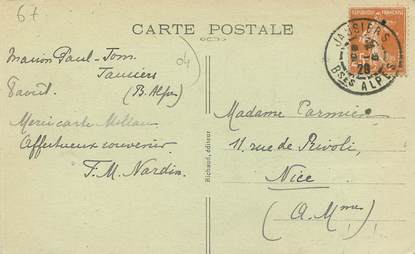 67
CARTE POSTALE
04
Maison Paul-Tom.
Jausiers
7 août (B. Alpes)
Merci carte
Affectueux souvenir
F. M. Nardin.
Richaud, éditeur
REPUBLIQUE FRANCAISE
JAUSIERS
BSES ALPES
Madame
11, rue de Rivoli,
Nice
(A. Mmes)